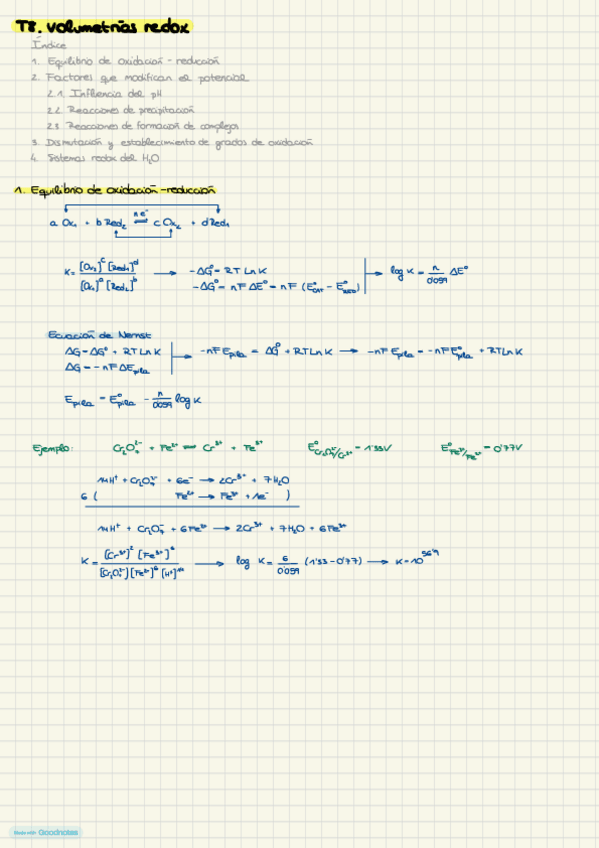 T8. Volumetrías redox
Índice
1. Equilibrio de oxidación-reducción
2. Factores que modifican el potencial
2.1. Influencia del pH
2.2. Reacciones de precipitación
2.3. Reacciones de formación de complejos
3. Dismutación y establecimiento de grados de oxidación
4. Sistemas redox del H₂O
1. Equilibrio de oxidación-reducción
n e⁻
a Ox₁ + b Red₂ ⇌ c Ox₂ + d Red₁
K = [Ox₂]ᶜ [Red₁]ᵈ / [Ox₁]ᵃ [Red₂]ᵇ → -ΔG° = RT Ln K → log K = n/0'059 ΔE°
-ΔG° = nF ΔE° = nF (E°CAT - E°RED)
Ecuación de Nernst
ΔG = ΔG° + RT Ln K → -nF Epila = ΔG° + RT Ln K → -nF Epila = -nF E°pila + RT Ln K
ΔG = -nF ΔEpila
Epila = E°pila - n/0'059 log K
Ejemplo: Cr₂O₇²⁻ + Fe²⁺ ⇌ Cr³⁺ + Fe³⁺ E°Cr₂O₇²⁻/Cr³⁺ = 1'33V E°Fe³⁺/Fe²⁺ = 0'77V
14H⁺ + Cr₂O₇²⁻ + 6e⁻ → 2Cr³⁺ + 7H₂O
6 ( Fe²⁺ → Fe³⁺ + 1e⁻ )
14H⁺ + Cr₂O₇²⁻ + 6Fe²⁺ → 2Cr³⁺ + 7H₂O + 6Fe³⁺
K = [Cr³⁺]² [Fe³⁺]⁶ / [Cr₂O₇²⁻] [Fe²⁺]⁶ [H⁺]¹⁴ → log K = 6/0'059 (1'33 - 0'77) → K = 10^56'9
Made with Goodnotes